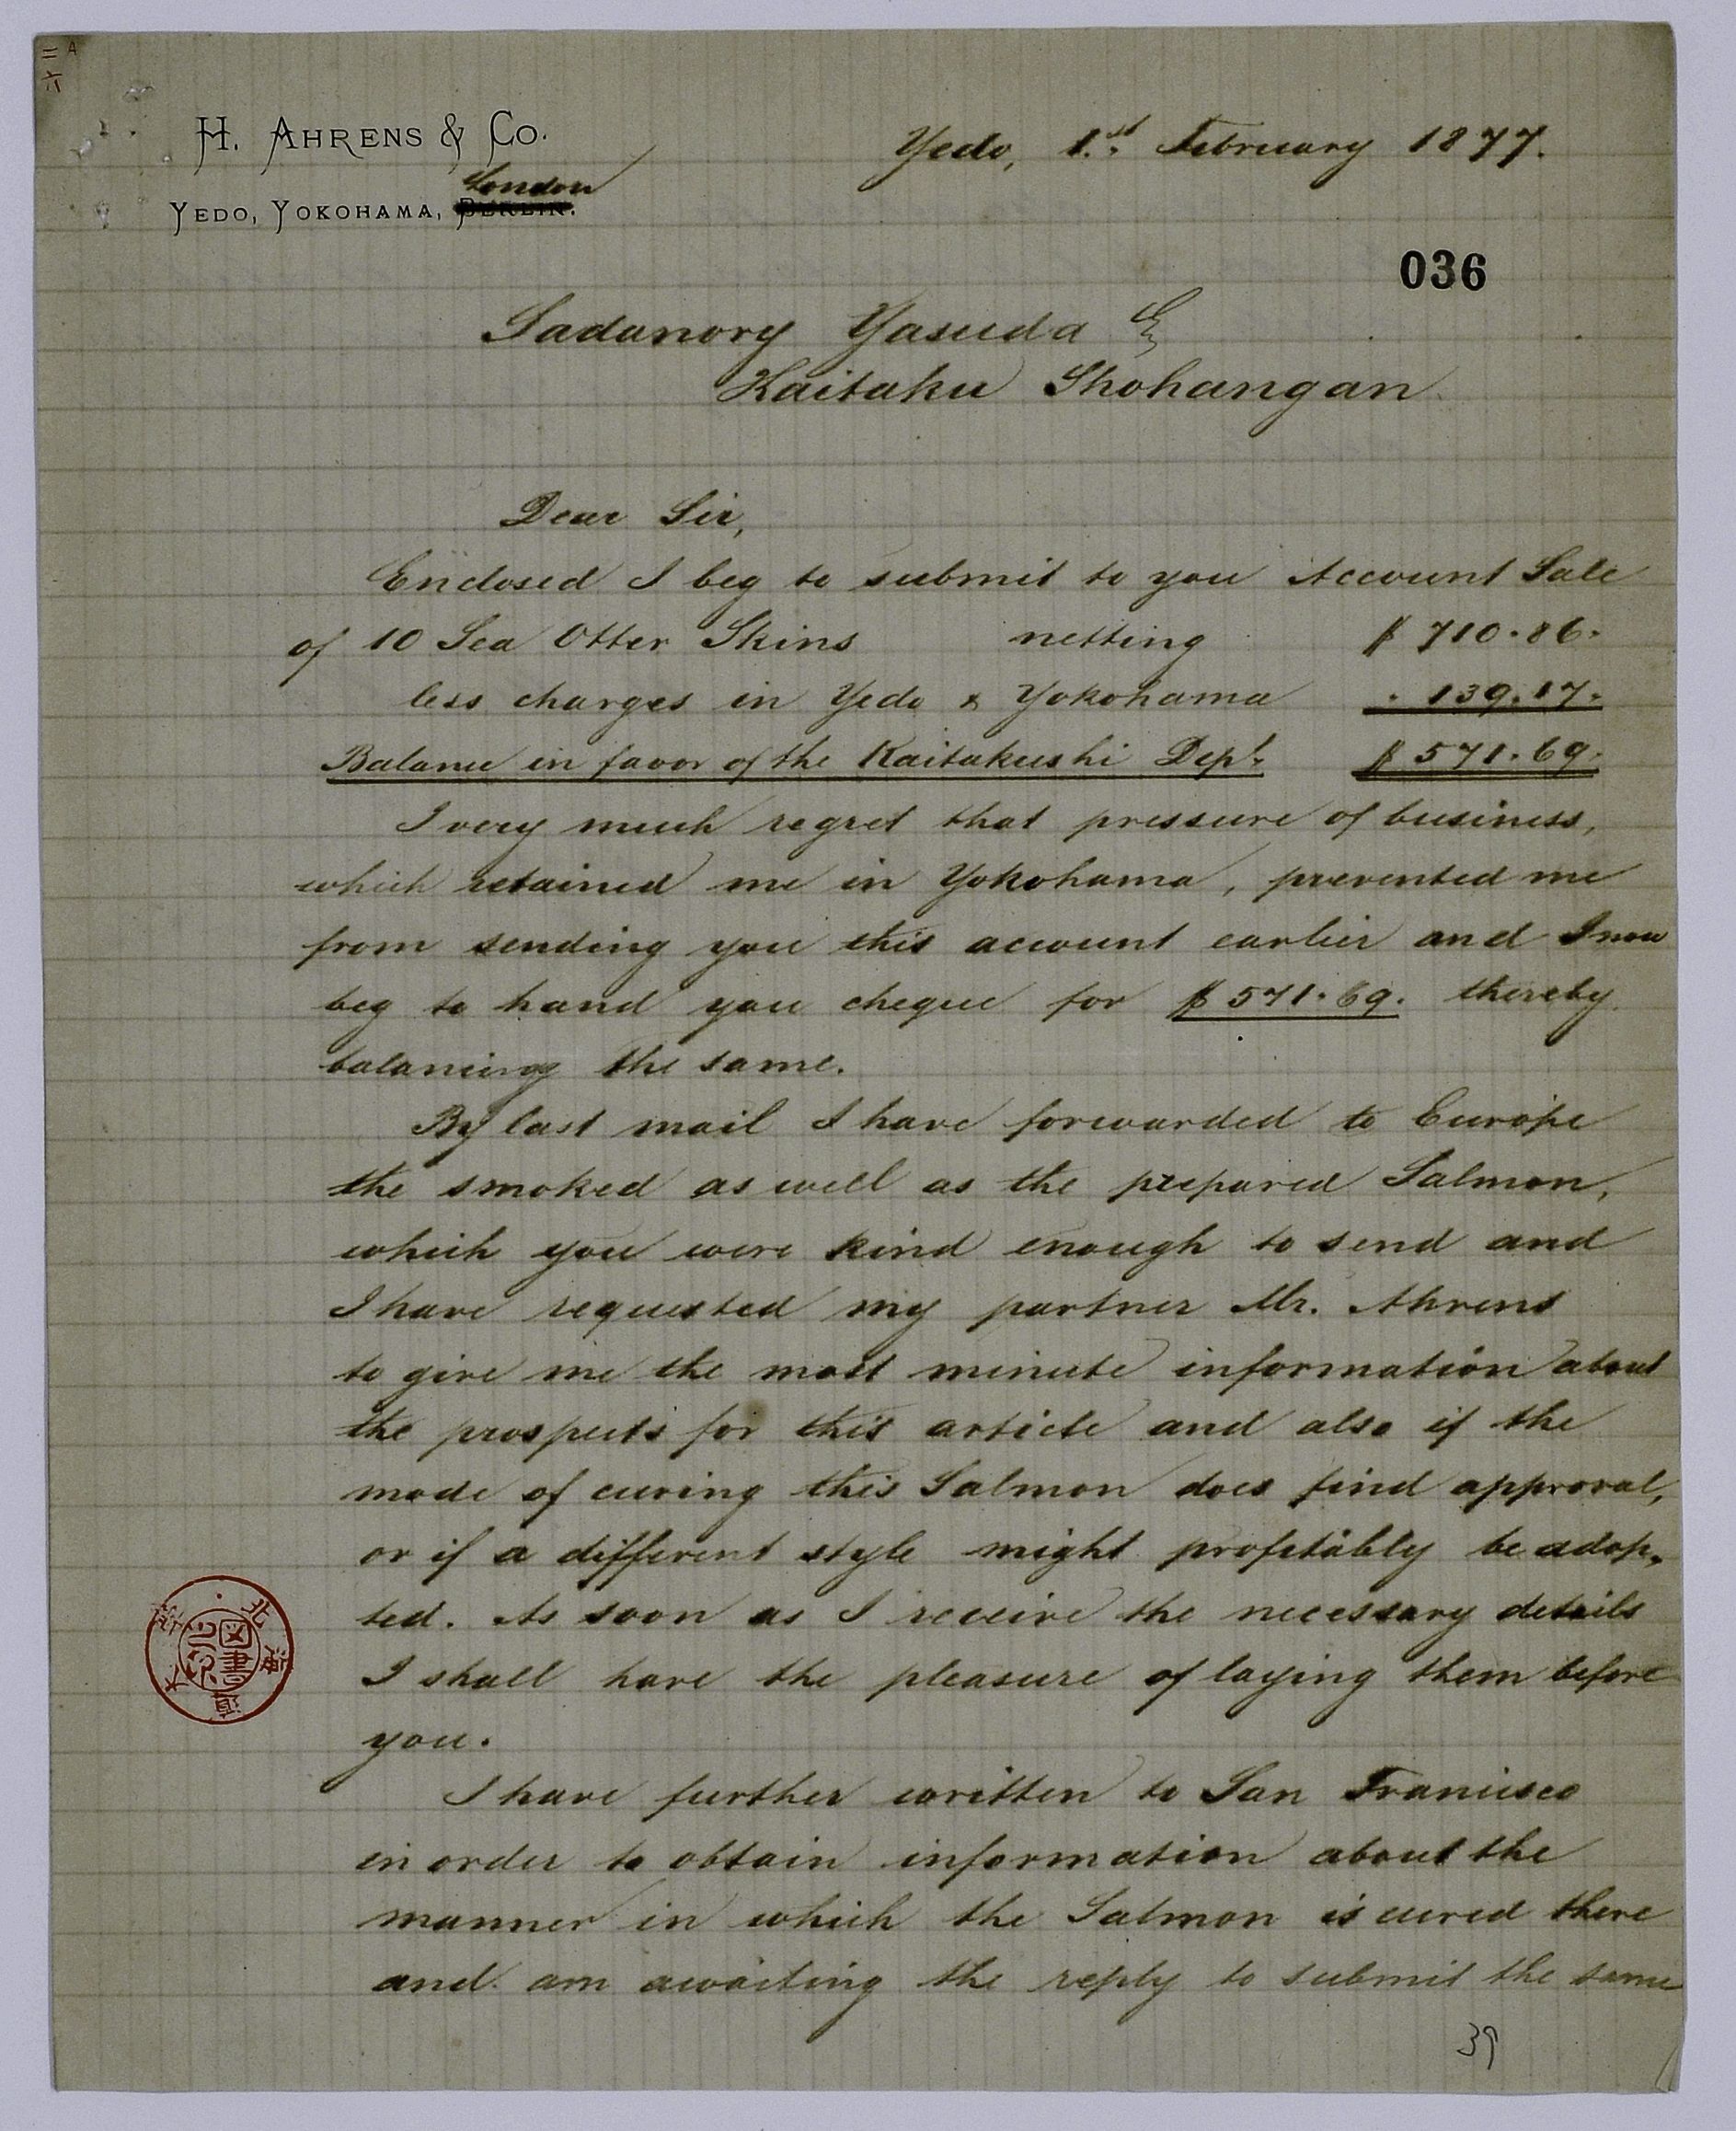 二六 A
H. AHRENS & CO.
London
YEDO, YOKOHAMA, BERLIN.
Yedo, 1st February 1877.
036
Sadanory Yasuda
Kaitaku Shohangan
Dear Sir,
Enclosed I beg to submit to you Account Sale
of 10 Sea Otter Skins netting $ 710.86.
less charges in Yedo & Yokohama " 139.17.
Balance in favor of the Kaitakushi Dept. $ 571.69.
I very much regret that pressure of business,
which retained me in Yokohama, prevented me
from sending you this account earlier and I now
beg to hand you cheque for $ 571.69. thereby
balancing the same.
By last mail I have forwarded to Europe
the smoked as well as the prepared Salmon,
which you were kind enough to send and
I have requested my partner Mr. Ahrens
to give me the most minute information about
the prospects for this article and also if the
mode of curing this Salmon does find approval,
or if a different style might profitably be adop-
ted. As soon as I receive the necessary details
I shall have the pleasure of laying them before
you.
北海道大學
圖書
I have further written to San Francisco
in order to obtain information about the
manner in which the Salmon is cured there
and am awaiting the reply to submit the same
39